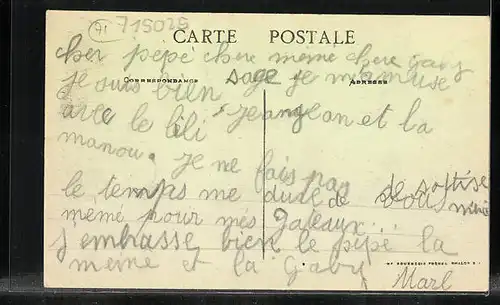 71 715025
CARTE POSTALE
cher pepé chere memé chere gaby
CORRESPONDANCE ADRESSE
je suis bien sage je mamuse
avec le lili jeanjean et la
manou. je ne fais pas
de sottise
le temps me dure de vous
memé pour mes gateaux...
j embrasse bien le pépé la
meme et la Gaby
Marl